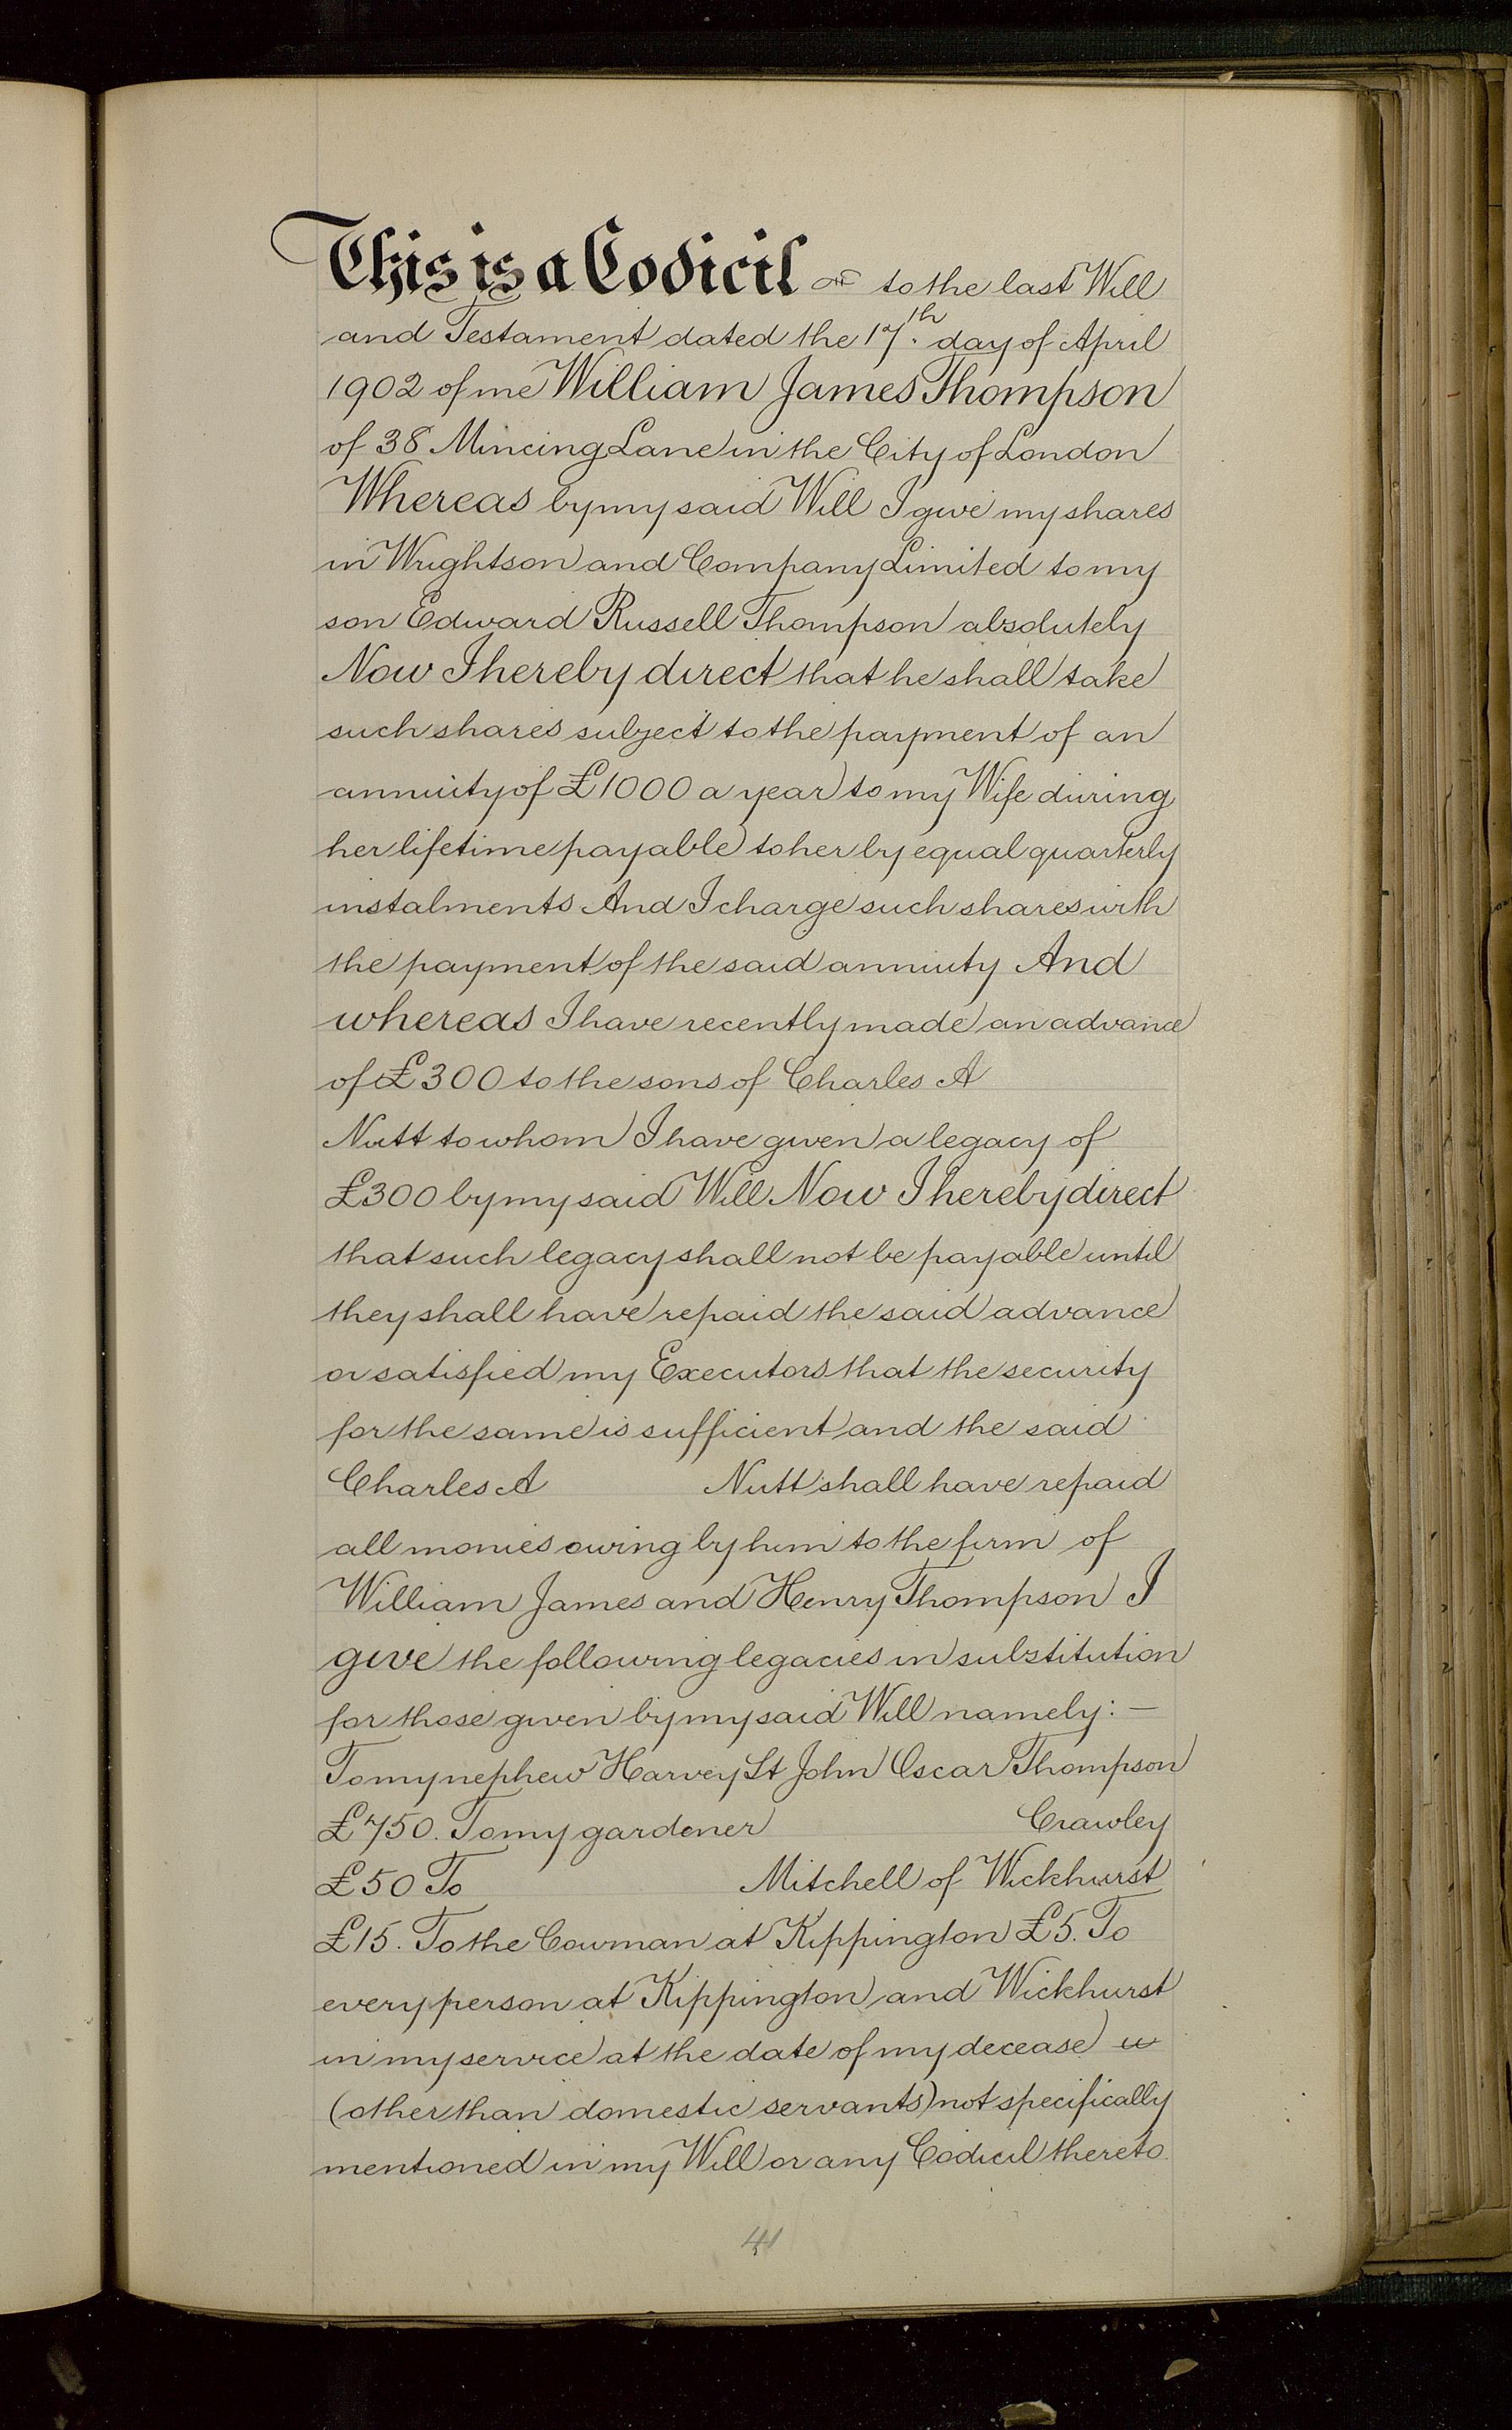 This is a Codicil to the last Will
and Testament dated the 17th. day of April
1902 of me William James Thompson
of 38 Mincing Lane in the City of London
Whereas by my said Will I give my shares
in Wrightson and Company Limited to my
son Edward Russell Thompson absolutely
Now I hereby direct that he shall take
such shares subject to the payment of an
annuity of £1000 a year to my Wife during
her lifetime payable to her by equal quarterly
instalments And I charge such shares with
the payment of the said annuity And
whereas I have recently made an advance
of £300 to the sons of Charles A
Nutt to whom I have given a legacy of
£300 by my said Will Now I hereby direct
that such legacy shall not be payable until
they shall have repaid the said advance
or satisfied my Executors that the security
for the same is sufficient and the said
Charles A Nutt shall have repaid
all monies owing by him to the firm of
William James and Henry Thompson I
give the following legacies in substitution
for those given by my said Will namely: —
To my nephew Harvey St John Oscar Thompson
£750. To my gardener Crawley
£50 To Mitchell of Wickhurst
£15. To the Cowman at Kippington £5. To
every person at Kippington and Wickhurst
in my service at the date of my decease
(other than domestic servants) not specifically
mentioned in my Will or any Codicil thereto.